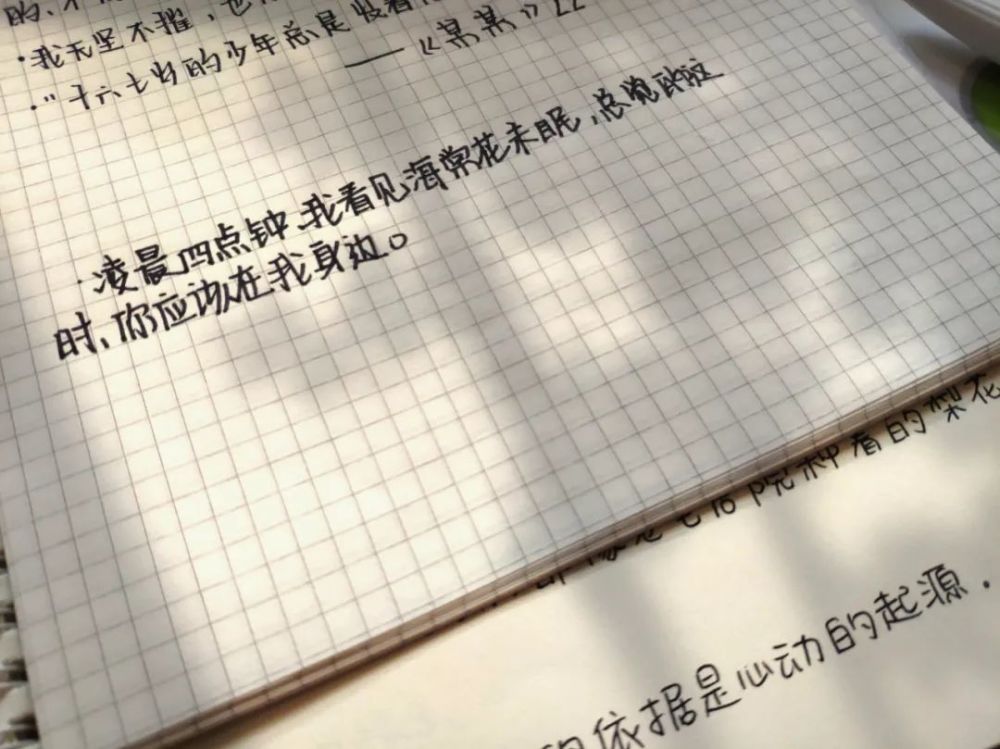 的、不
·我无坚不摧，也
·“十六七岁的少年总是
——《某某》
·凌晨四点钟、我看见海棠花未眠，总觉
时、你应该在我身边。
院种着的梨花
依据是心动的起源．